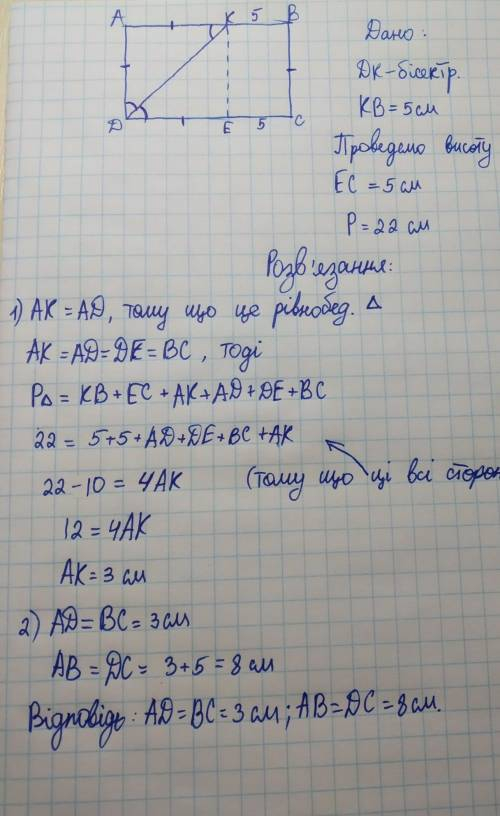 A K 5 B
D E 5 C
Дано:
DK-бісектр.
KB = 5см
Проведемо висоту
EC = 5см
P = 22 см
Розв'язання:
1) AK = AD, тому що це рівнобед. Δ
AK = AD = DE = BC, тоді
PΔ = KB + EC + AK + AD + DE + BC
22 = 5+5+AD+DE+BC+AK
22-10 = 4AK (тому що ці всі сторон
12 = 4AK
AK = 3 см
2) AD = BC = 3см
AB = DC = 3+5 = 8 см
Відповідь: AD = BC = 3см; AB = DC = 8см.